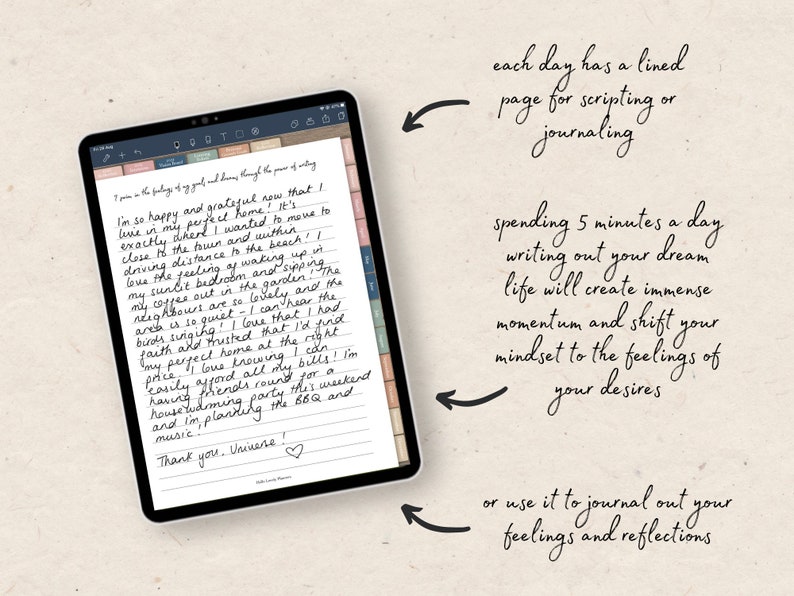 each day has a lined
page for scripting or
journaling
spending 5 minutes a day
writing out your dream
life will create immense
momentum and shift your
mindset to the feelings of
your desires
or use it to journal out your
feelings and reflections
Fri 26 Aug
47%
Vision Board
in the feelings of my goals and dreams through the power of writing
I'm so happy and grateful now that I
live in my perfect home! It's
exactly where I wanted to move to
close to the town and within
driving distance to the beach! I
love the feeling of waking up in
my sunlit bedroom and sipping
my coffee out in the garden! The
neighbours are so lovely and the
area is so quiet - I can hear the
birds singing! I love that I had
faith and trusted that I'd find
my perfect home at the right
price. I love knowing I can
easily afford all my bills! I'm
having friends round for a
housewarming party this weekend
and I'm planning the BBQ and
music!
Thank you, Universe!
Hello Lovely Planners